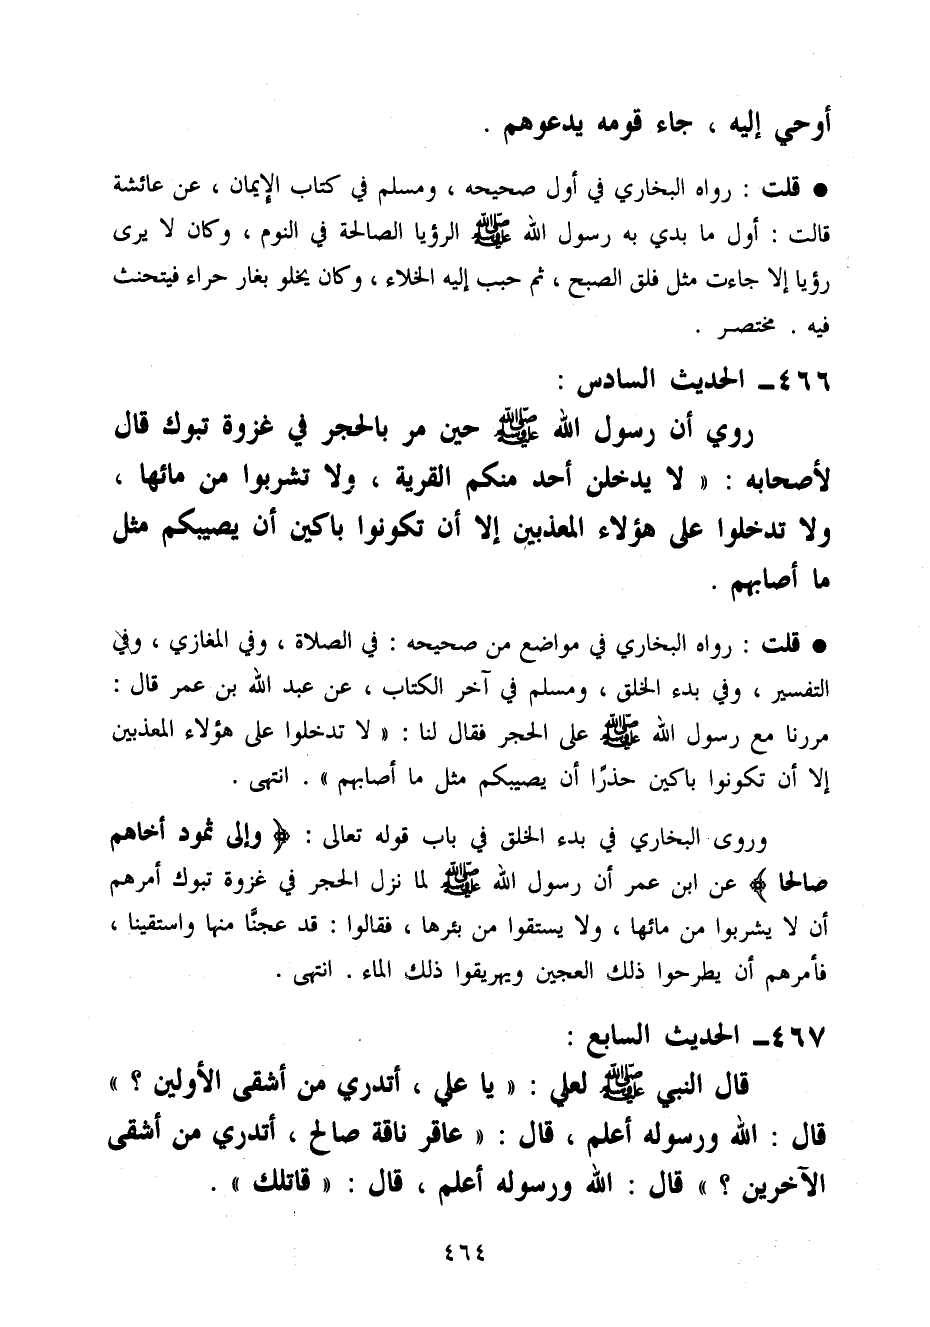 أوحي إليه ، جاء قومه يدعوهم .
● قلت : رواه البخاري في أول صحيحه ، ومسلم في كتاب الإيمان ، عن عائشة
قالت : أول ما بدي به رسول الله ﷺ الرؤيا الصالحة في النوم ، وكان لا يرى
رؤيا إلا جاءت مثل فلق الصبح ، ثم حبب إليه الخلاء ، وكان يخلو بغار حراء فيتحنث
فيه . مختصر .
٤٦٦ـ الحديث السادس :
روي أن رسول الله ﷺ حين مر بالحجر في غزوة تبوك قال
لأصحابه : « لا يدخلن أحد منكم القرية ، ولا تشربوا من مائها ،
ولا تدخلوا على هؤلاء المعذبين إلا أن تكونوا باكين أن يصيبكم مثل
ما أصابهم .
● قلت : رواه البخاري في مواضع من صحيحه : في الصلاة ، وفي المغازي ، وفي
التفسير ، وفي بدء الخلق ، ومسلم في آخر الكتاب ، عن عبد الله بن عمر قال :
مررنا مع رسول الله ﷺ على الحجر فقال لنا : « لا تدخلوا على هؤلاء المعذبين
إلا أن تكونوا باكين حذرًا أن يصيبكم مثل ما أصابهم » . انتهى .
وروى البخاري في بدء الخلق في باب قوله تعالى : ﴿ وإلى ثمود أخاهم
صالحا ﴾ عن ابن عمر أن رسول الله ﷺ لما نزل الحجر في غزوة تبوك أمرهم
أن لا يشربوا من مائها ، ولا يستقوا من بئرها ، فقالوا : قد عجنَّا منها واستقينا ،
فأمرهم أن يطرحوا ذلك العجين ويهريقوا ذلك الماء . انتهى .
٤٦٧ـ الحديث السابع :
قال النبي ﷺ لعلي : « يا علي ، أتدري من أشقى الأولين ؟ »
قال : الله ورسوله أعلم ، قال : « عاقر ناقة صالح ، أتدري من أشقى
الآخرين ؟ » قال : الله ورسوله أعلم ، قال : « قاتلك » .
٤٦٤